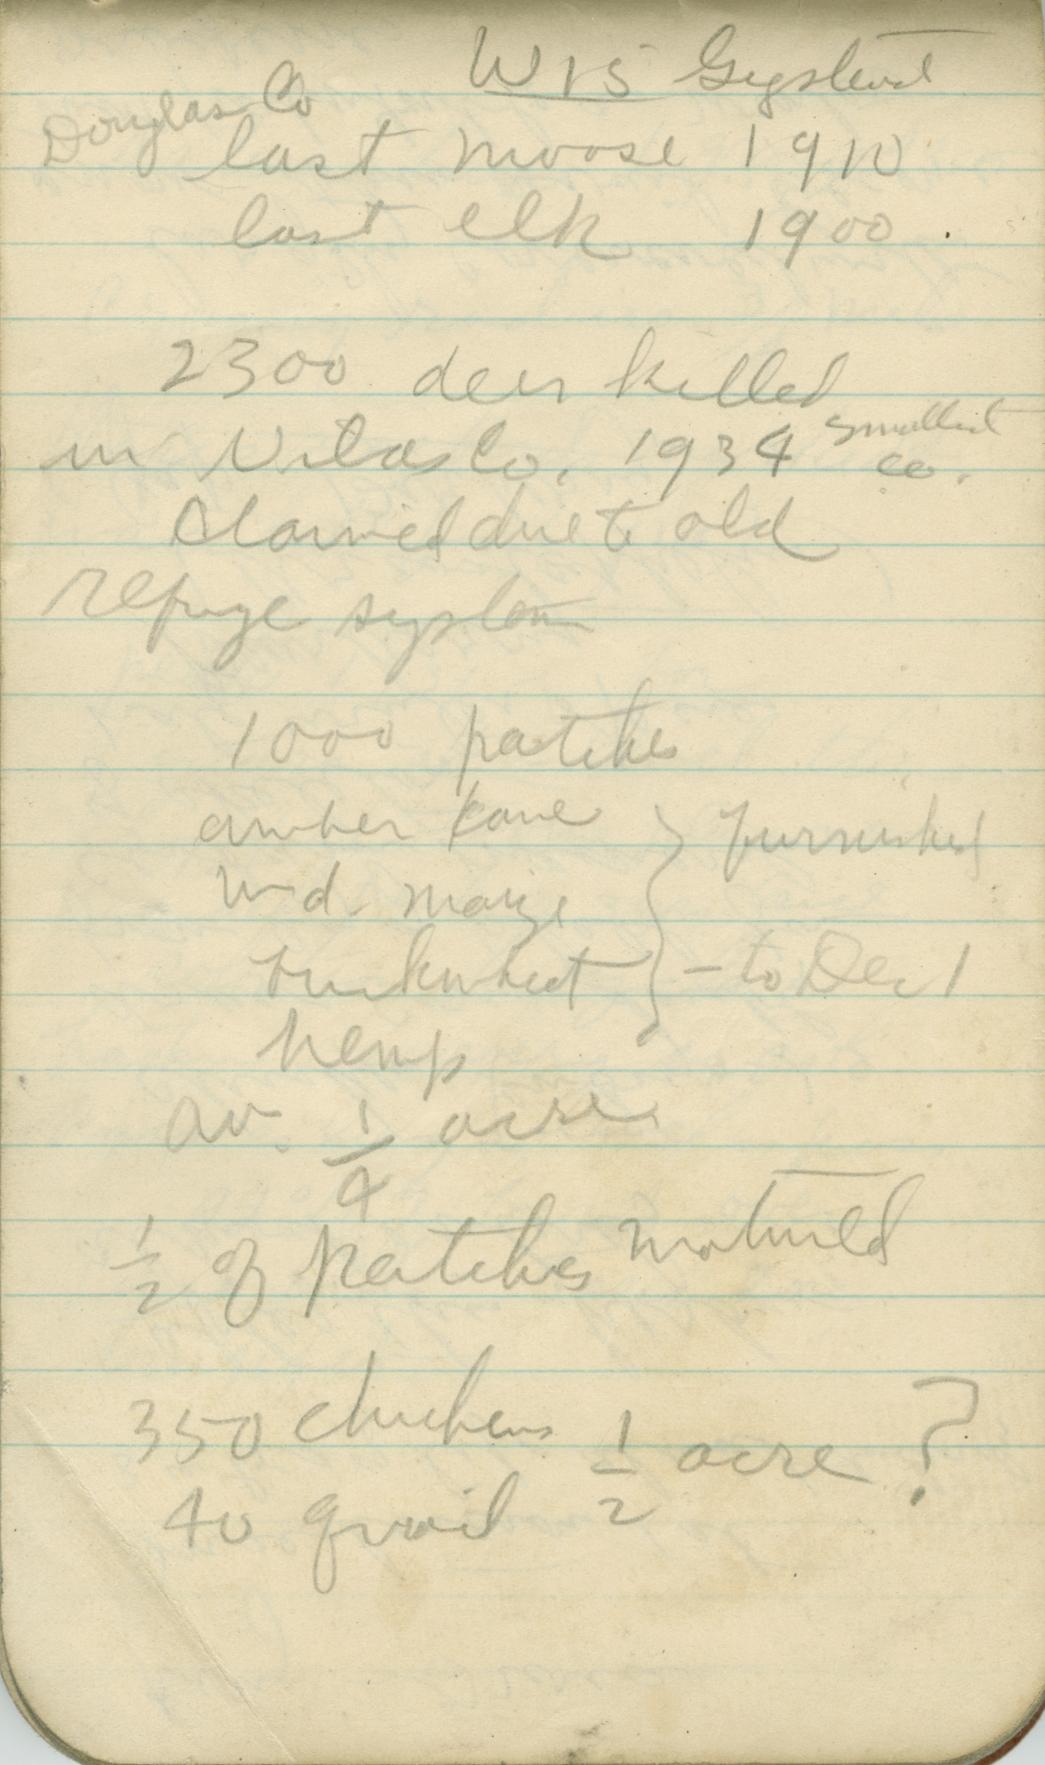 WIS
Douglas Co
last moose 1910
last elk 1900
2300 deer killed
in Vilas Co. 1934 smallest
co.
Claimed due to old
refuge system
1000 patches
amber kane } furnished
maize
buckwheat } - to Dec 1
hemp
av. 1/4 acre
1/2 of patches matured
350 chickens 1/2 acre ?
40 quail